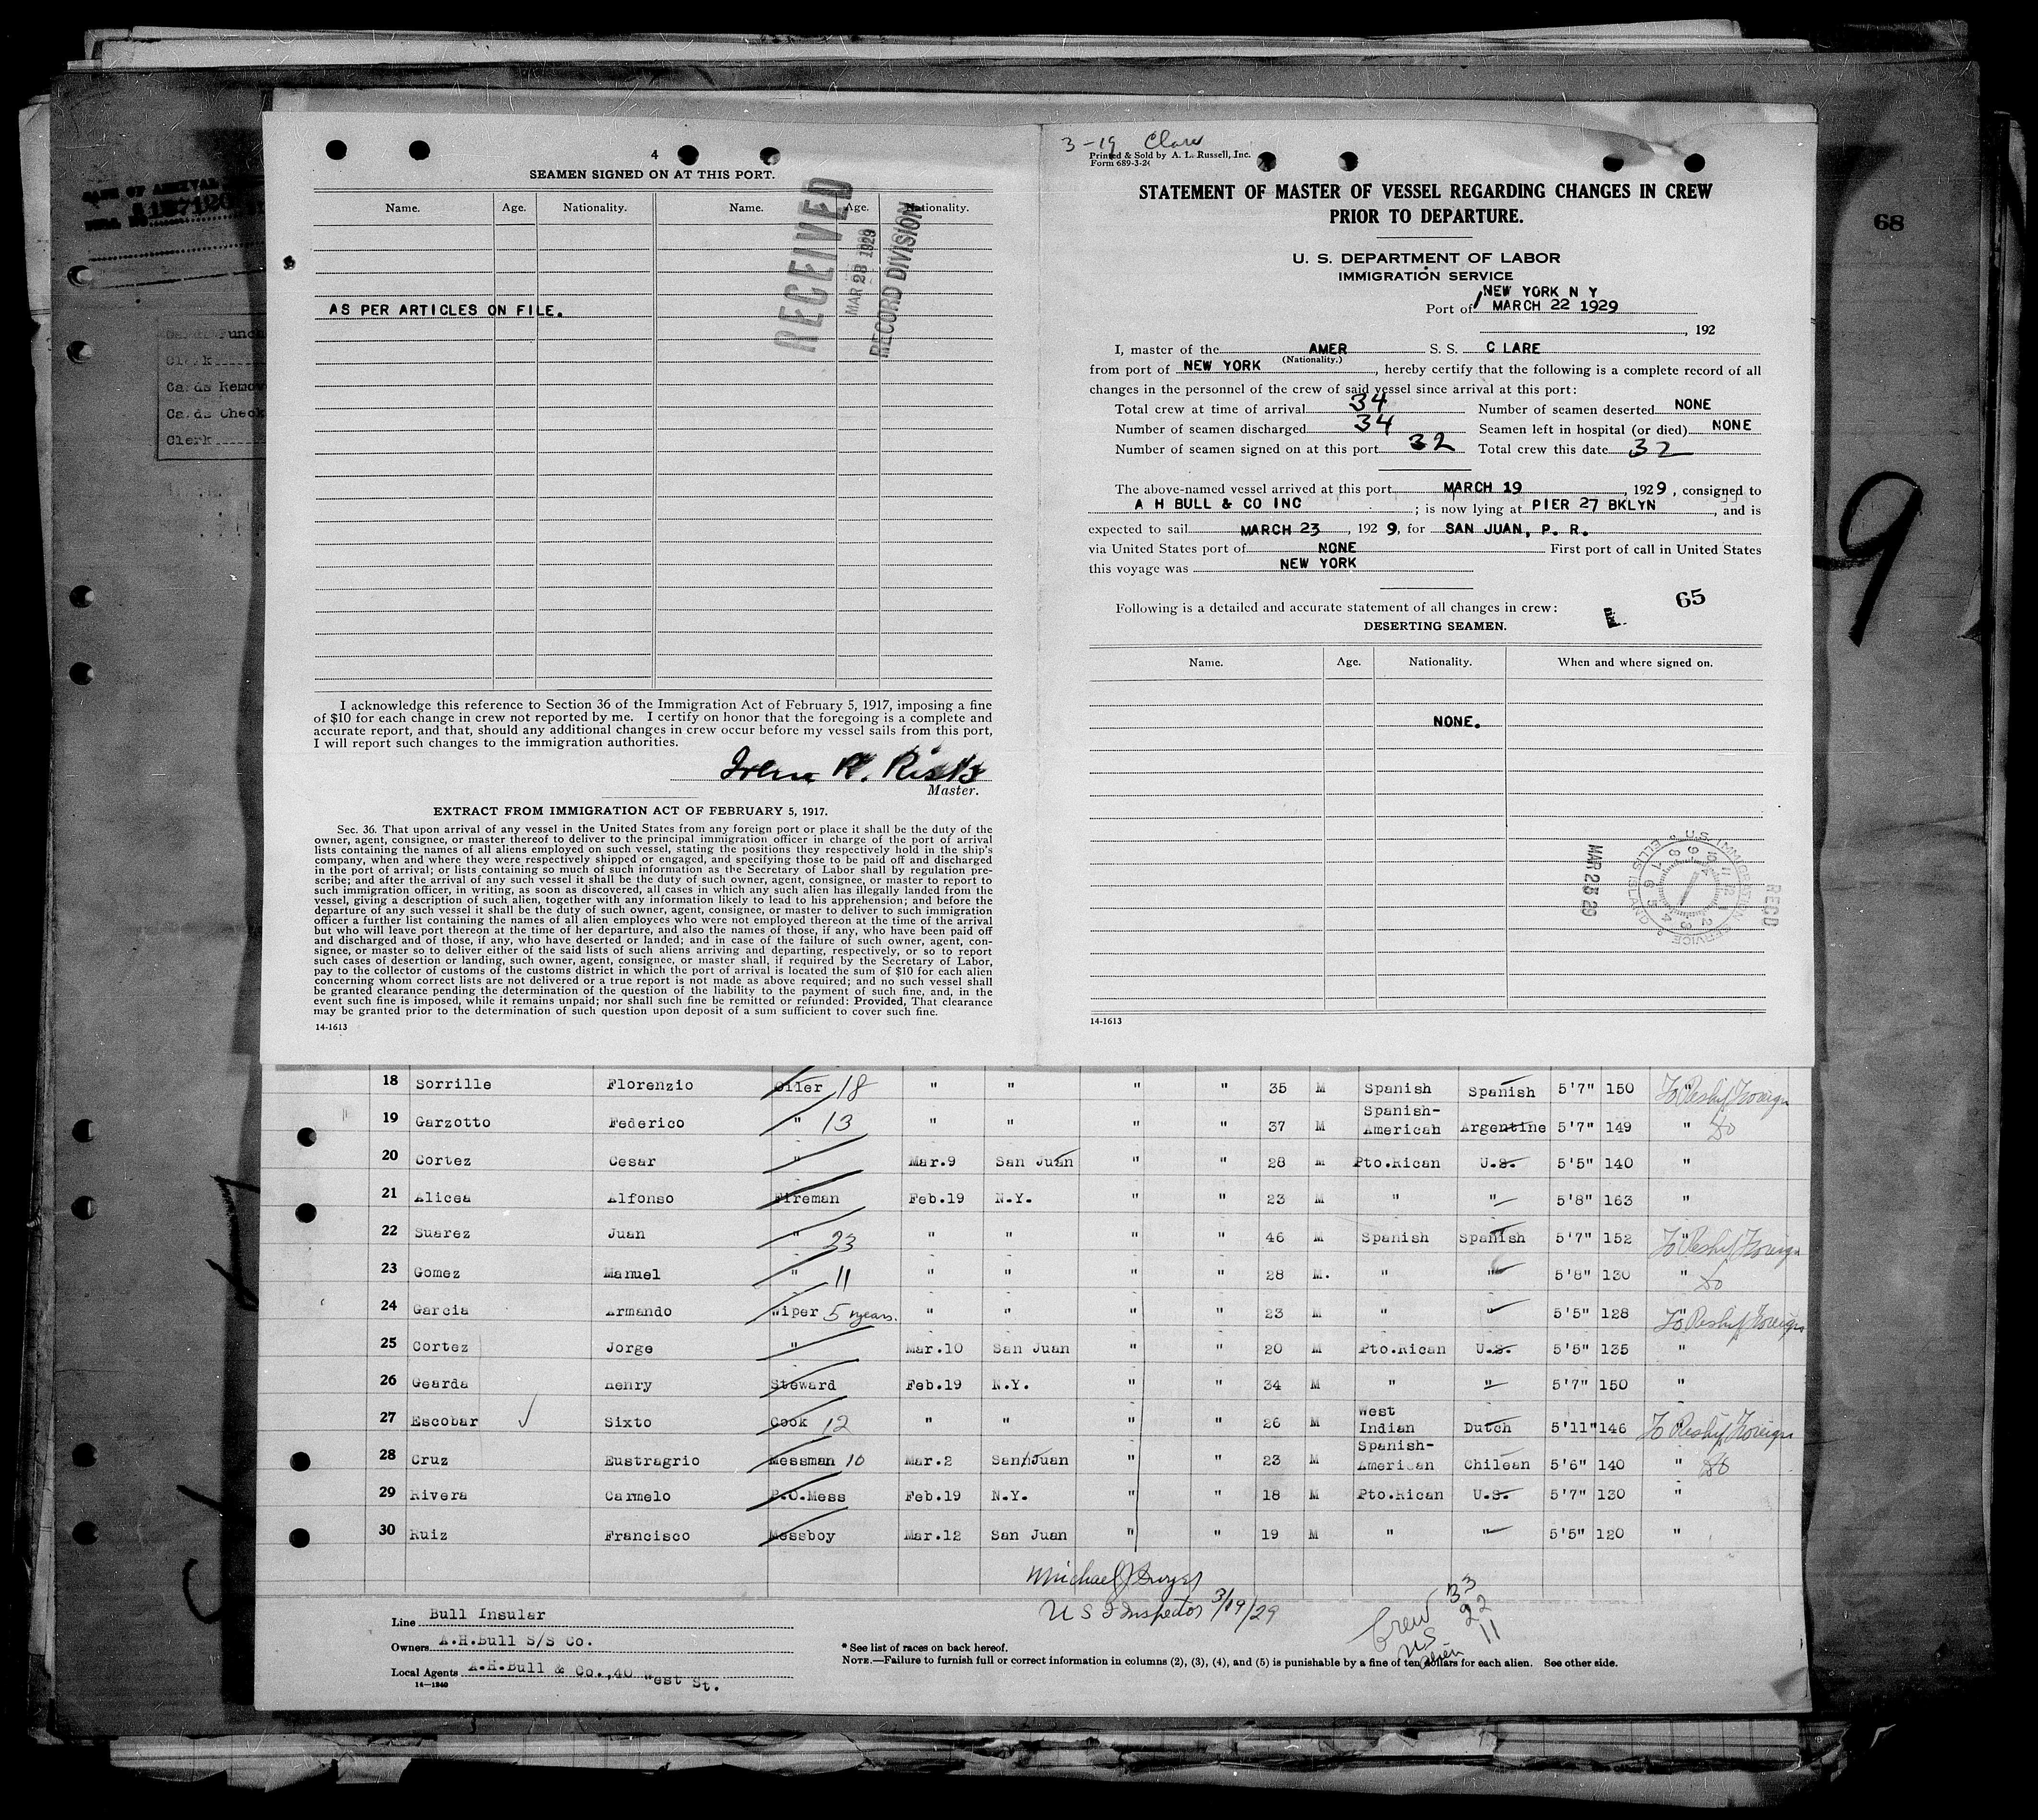 68
9
4
SEAMEN SIGNED ON AT THIS PORT.
Name. Age. Nationality. Name. Age. Nationality.
AS PER ARTICLES ON FILE.
RECEIVED
MAR 28 1929
RECORD DIVISION
I acknowledge this reference to Section 36 of the Immigration Act of February 5, 1917, imposing a fine
of $10 for each change in crew not reported by me. I certify on honor that the foregoing is a complete and
accurate report, and that, should any additional changes in crew occur before my vessel sails from this port,
I will report such changes to the immigration authorities.
Master.
EXTRACT FROM IMMIGRATION ACT OF FEBRUARY 5, 1917.
Sec. 36. That upon arrival of any vessel in the United States from any foreign port or place it shall be the duty of the
owner, agent, consignee, or master thereof to deliver to the principal immigration officer in charge of the port of arrival
lists containing the names of all aliens employed on such vessel, stating the positions they respectively hold in the ship's
company, when and where they were respectively shipped or engaged, and specifying those to be paid off and discharged
in the port of arrival; or lists containing so much of such information as the Secretary of Labor shall by regulation pre-
scribe; and after the arrival of any such vessel it shall be the duty of such owner, agent, consignee, or master to report to
such immigration officer, in writing, as soon as discovered, all cases in which any such alien has illegally landed from the
vessel, giving a description of such alien, together with any information likely to lead to his apprehension; and before the
departure of any such vessel it shall be the duty of such owner, agent, consignee, or master to deliver to such immigration
officer a further list containing the names of all alien employees who were not employed thereon at the time of the arrival
but who will leave port thereon at the time of her departure, and also the names of those, if any, who have been paid off
and discharged and of those, if any, who have deserted or landed; and in case of the failure of such owner, agent, con-
signee, or master so to deliver either of the said lists of such aliens arriving and departing, respectively, or so to report
such cases of desertion or landing, such owner, agent, consignee, or master shall, if required by the Secretary of Labor,
pay to the collector of customs of the customs district in which the port of arrival is located the sum of $10 for each alien
concerning whom correct lists are not delivered or a true report is not made as above required; and no such vessel shall
be granted clearance pending the determination of the question of the liability to the payment of such fine, and, in the
event such fine is imposed, while it remains unpaid; nor shall such fine be remitted or refunded: Provided, That clearance
may be granted prior to the determination of such question upon deposit of a sum sufficient to cover such fine.
14-1613
3-19 Clare
Printed & Sold by A. L. Russell, Inc.
Form 689-3-2
STATEMENT OF MASTER OF VESSEL REGARDING CHANGES IN CREW
PRIOR TO DEPARTURE.
U. S. DEPARTMENT OF LABOR
IMMIGRATION SERVICE
NEW YORK N Y
Port of MARCH 22 1929
, 192
I, master of the AMER S. S. CLARE
(Nationality.)
from port of NEW YORK , hereby certify that the following is a complete record of all
changes in the personnel of the crew of said vessel since arrival at this port:
Total crew at time of arrival 34 Number of seamen deserted NONE
Number of seamen discharged 34 Seamen left in hospital (or died) NONE
Number of seamen signed on at this port 32 Total crew this date 32
The above-named vessel arrived at this port MARCH 19 , 1929 , consigned to
A H BULL & CO INC ; is now lying at PIER 27 BKLYN , and is
expected to sail MARCH 23 , 192 9, for SAN JUAN, P. R.
via United States port of NONE First port of call in United States
this voyage was NEW YORK
Following is a detailed and accurate statement of all changes in crew: 65
DESERTING SEAMEN.
Name. Age. Nationality. When and where signed on.
NONE.
MAR 28 29
U.S. IMMIGRATION SERVICE ELLIS ISLAND
RECD
14-1613
18 Sorrille Florenzio Oiler 18 " " " " 35 M Spanish Spanish 5'7" 150 " To Reship Foreign
19 Garzotto Federico " 13 " " " " 37 M Spanish-American Argentine 5'7" 149 " Do
20 Cortez Cesar " Mar.9 San Juan " " 28 M Pto.Rican U.S. 5'5" 140 "
21 Alicea Alfonso Fireman Feb.19 N.Y. " " 23 M " " 5'8" 163 "
22 Suarez Juan " 23 " " " " 46 M Spanish Spanish 5'7" 152 " To Reship Foreign
23 Gomez Manuel " 11 " " " " 28 M. " " 5'8" 130 " Do
24 Garcia Armando Wiper 5 years. " " " " 23 M " " 5'5" 128 " To Reship Foreign
25 Cortez Jorge " Mar.10 San Juan " " 20 M Pto.Rican U.S. 5'5" 135 "
26 Gearda Henry Steward Feb.19 N.Y. " " 34 M " " 5'7" 150 "
27 Escobar Sixto Cook 12 " " " " 26 M West Indian Dutch 5'11" 146 " To Reship Foreign
28 Cruz Eustragrio Messman 10 Mar.2 San Juan " " 23 M Spanish-American Chilean 5'6" 140 " Do
29 Rivera Carmelo P.O.Mess Feb.19 N.Y. " " 18 M Pto.Rican U.S. 5'7" 130 "
30 Ruiz Francisco Messboy Mar.12 San Juan " " 19 M " " 5'5" 120 "
U S Inspector 3/19/29
Crew 33
US 22
alien 11
Line Bull Insular
Owners A.H.Bull S/S Co.
Local Agents A.H.Bull & Co.,40 West St.
14-1240
* See list of races on back hereof.
NOTE.—Failure to furnish full or correct information in columns (2), (3), (4), and (5) is punishable by a fine of ten dollars for each alien. See other side.